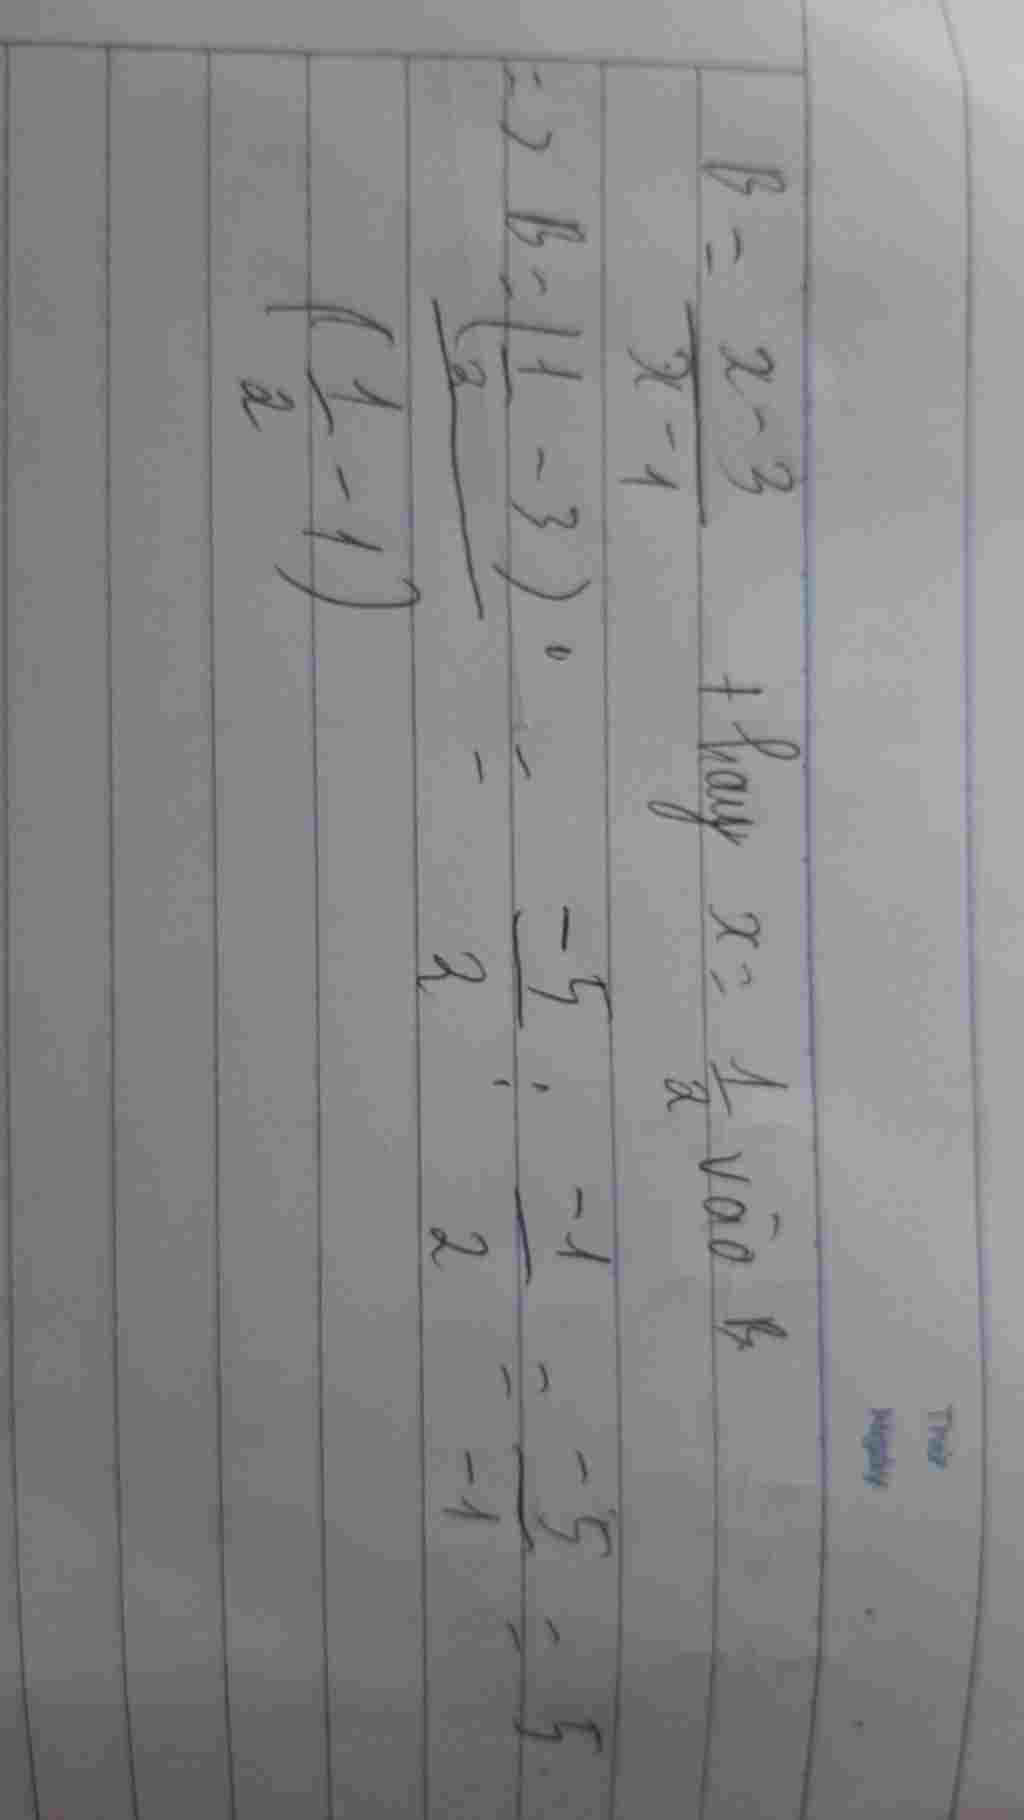 Thứ
Ngày
B = \frac{x-3}{x-1} thay x = \frac{1}{2} vào B
=> B = \frac{(\frac{1}{2} - 3)}{(\frac{1}{2} - 1)} = \frac{-5}{2} : \frac{-1}{2} = \frac{-5}{-1} = 5